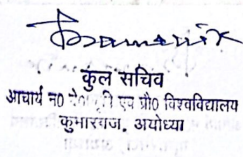 कुल सचिव
आचार्य न0 दे0 कृषि एवं प्रौ0 विश्वविद्यालय
कुमारगंज, अयोध्या